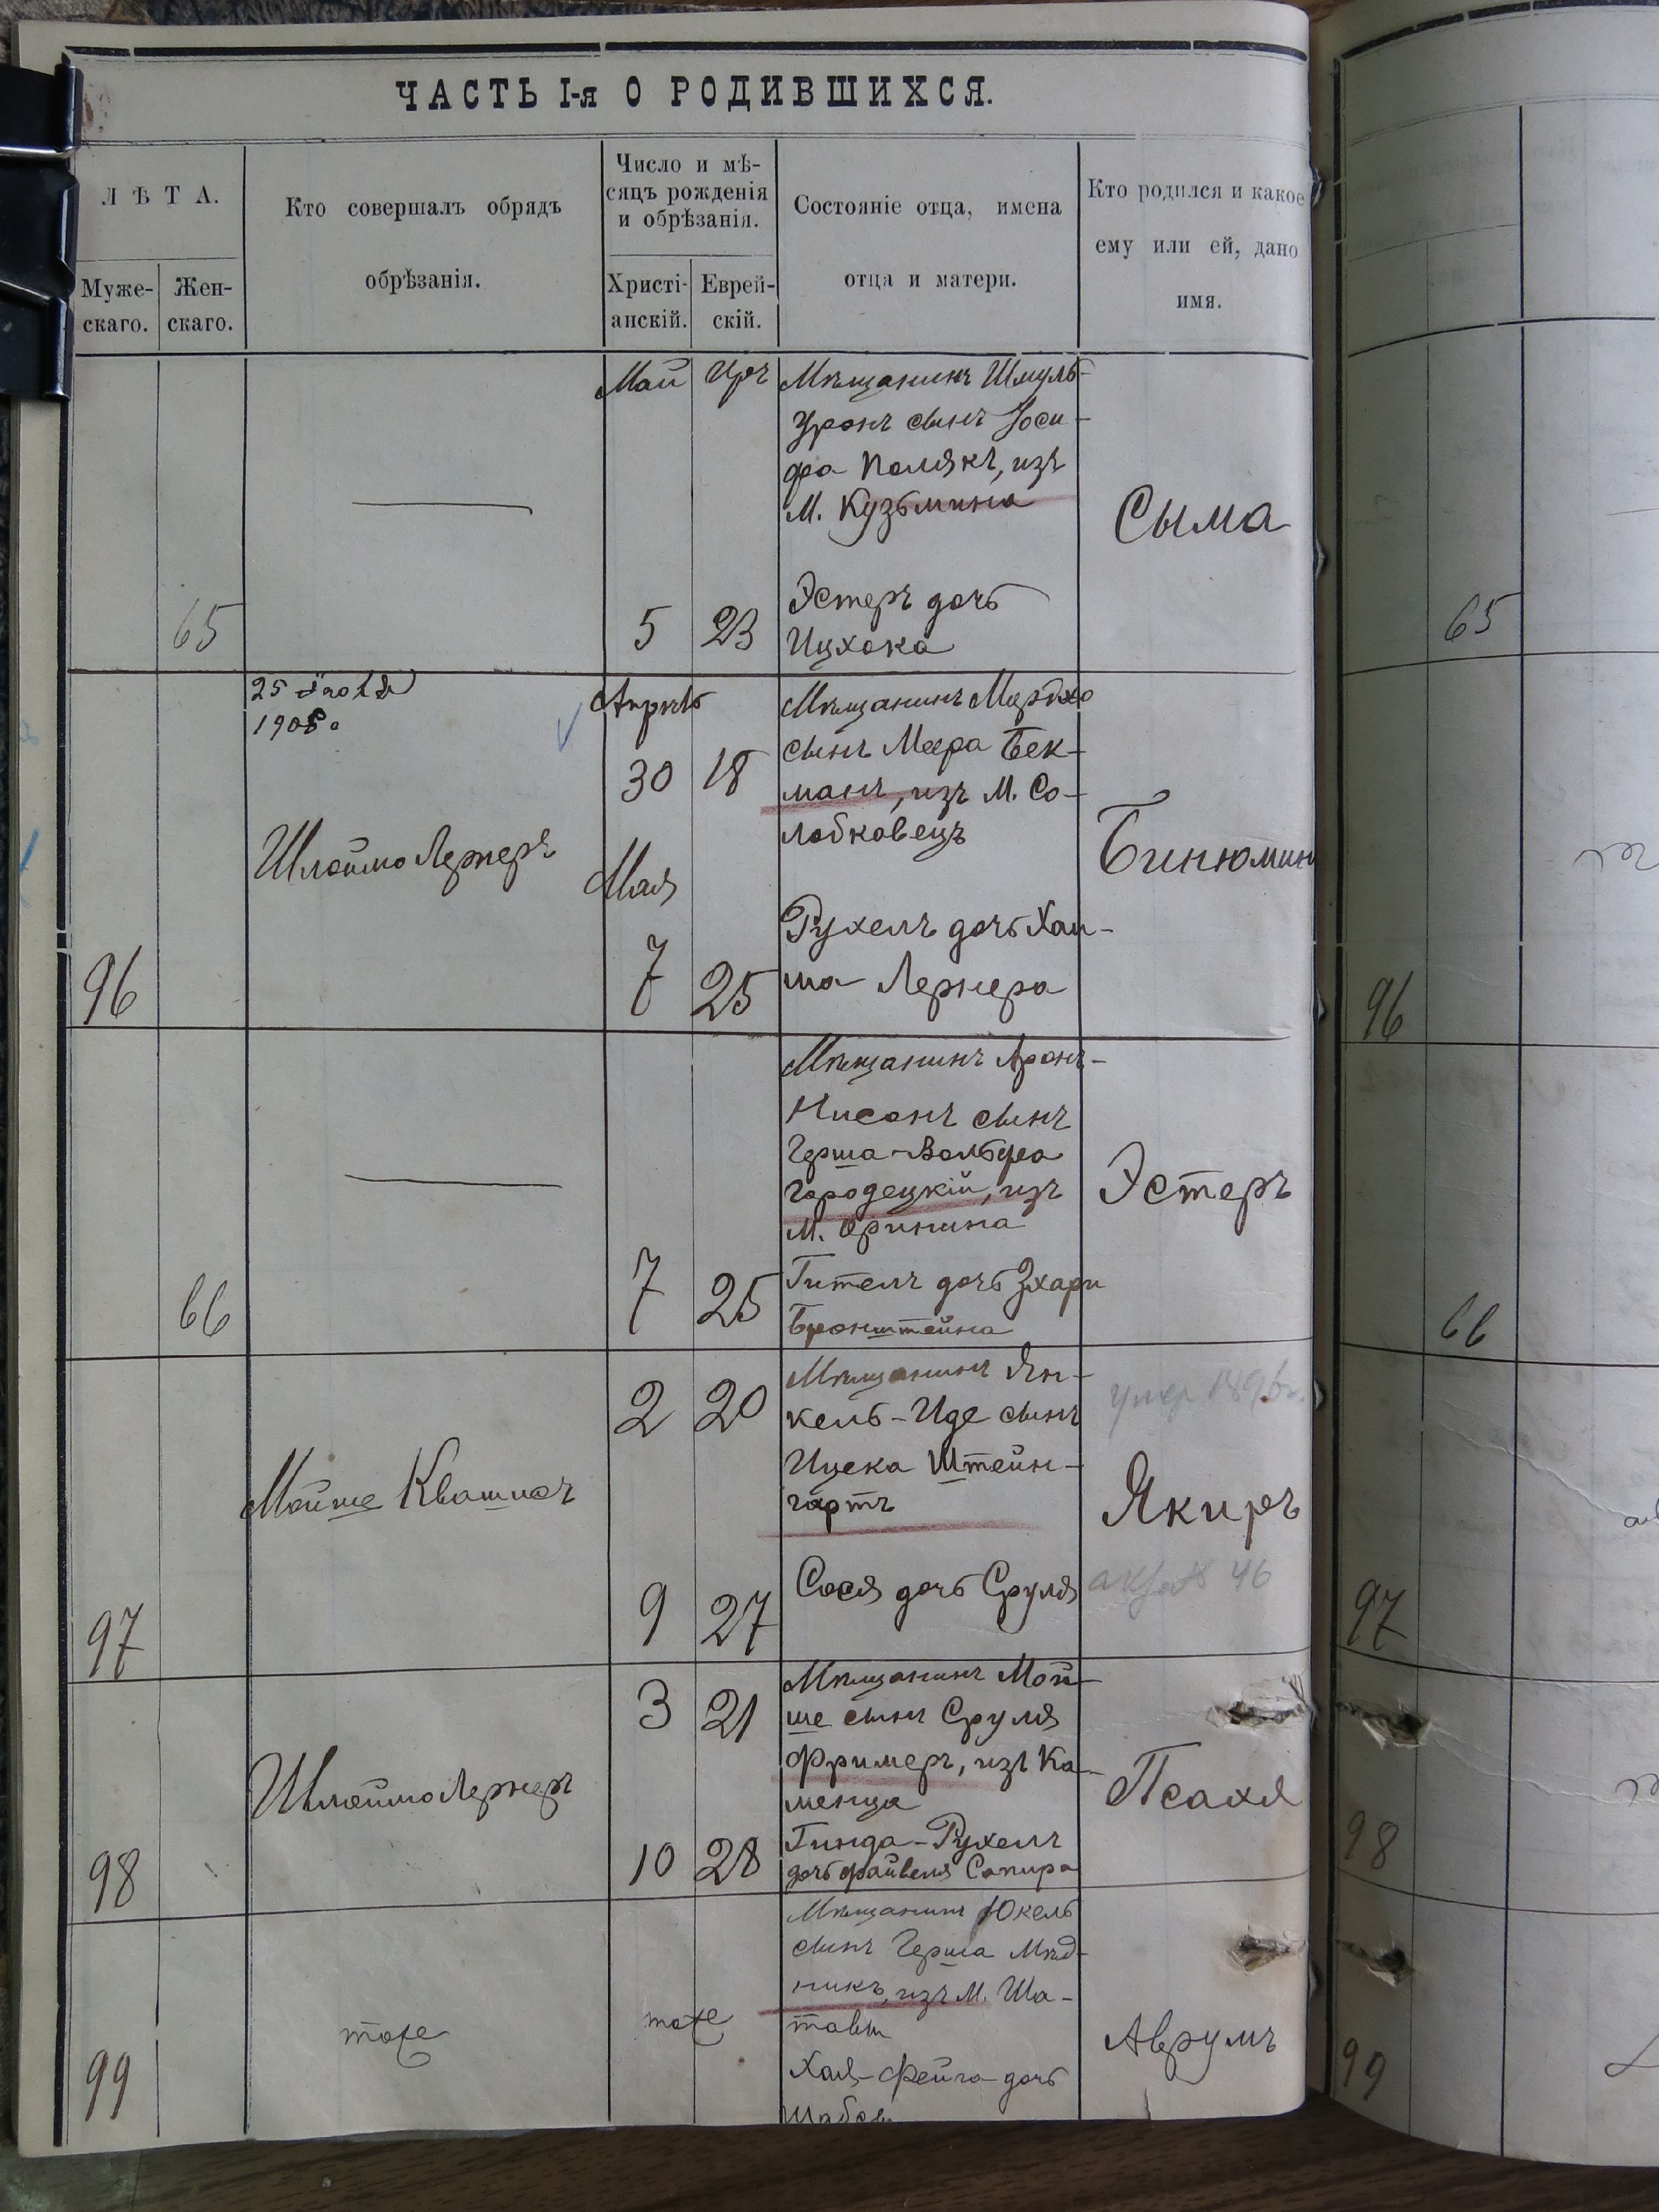 ЧАСТЬ I-я О РОДИВШИХСЯ.
ЛѢТА.
Муже-
скаго.
Жен-
скаго.
Кто совершалъ обрядъ
обрѣзанія.
Число и мѣ-
сяцъ рожденія
и обрѣзанія.
Христі-
анскій.
Еврей-
скій.
Состояніе отца, имена
отца и матери.
Кто родился и какое
ему или ей, дано
имя.
65
Май
5
Іяръ
23
Мѣщанинъ Шмуль-
Уронъ сынъ Іоси-
фа Полякъ, изъ
М. Кузьмина
Эстеръ дочь
Ицхока
Сыма
65
96
25 Іюля
1908.
Шлоймо Лернеръ
Апрѣль
30
18
Мая
7
25
Мѣщанинъ Мордхо
сынъ Меера Бек-
манъ, изъ М. Со-
лобковецъ
Рухель дочь Хаи-
ма Лернера
Бинюминъ
96
66
7
25
Мѣщанинъ Аронъ-
Нисонъ сынъ
Герша-Вольфа
Городецкій, изъ
М. Оринина
Гителъ дочь Зхари
Бронштейна
Эстеръ
66
97
Мойше Квашнок
2
20
9
27
Мѣщанинъ Ян-
кель-Иде сынъ
Ицека Штейн-
гартъ
Сося дочь Сруля
умер 1896г.
Якиръ
актъ 46
97
98
Шлоймо Лернеръ
3
21
10
28
Мѣщанинъ Мой-
ше сынъ Сруля
Фримеръ, изъ Ка-
менца
Гинда-Рухелъ
дочь Файвеля Сапира
Псахя
98
99
тоже
тоже
Мѣщанинъ Юкель
сынъ Герша Мѣд-
никъ, изъ М. Ша-
тавы
Хая-Фейга дочь
Аврумъ
99